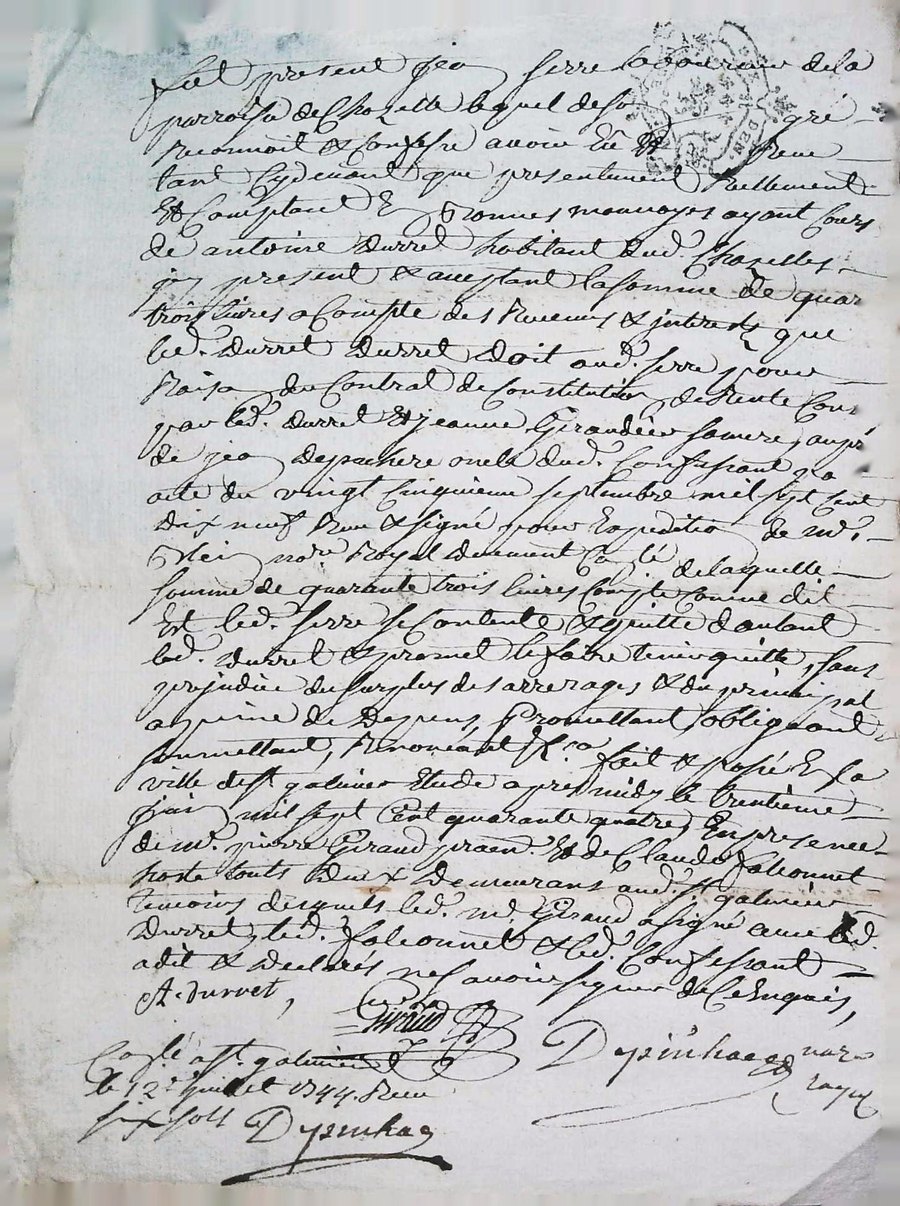 fut present jea serre laboureur de la
parroisse de Chazelle lequel de so gré
Reconnoit & Confesse avoir Eu & Rece
tant Cydevant que presentement Réellement
Et Comptant En bonnes monnoyes ayant Cours
de antoine Durret habitant dud. Chazelles
icy present & acceptant la somme de quar
trois livres a Compte des Revenus & jnterets que
led. Durret Durret Doit aud. serre pour
Raison du Contrat de Constitution de Rente Cons
par led. Durret Et jeanne Girandier sa mere, au pr
de jea depachere oncle dud. Confessant pa
acte du vingt Cinquieme septembre mil sept Cent
dix neuf Receu & signé pour Expedition de me.
nore Royal Duement Cağlé delaquelle
somme de quarante trois livres Compte Comme dit
Est led. serre se Contente & quitte d'autant
led. Durret & promet le faire tenir quitte, sans
prejudice du surplus des arrerages & du principal
a peine de Depens, Promettant obligeant
soumettant, Renonceant &ca fait & passé En la
ville de st. galmier Etude apres midy le trentieme
juin mil sept Cent quarante quatre, En presence
de me. pierre Giraud & de Claude falconnet
hoste touts Deux Demeurans aud. st galmier
temoins desquels led. me. Giraud a signé avec led.
Durret, led. falconnet & led. Confessant
adit & Declarés ne sçavoir signer de Ce Enquis,
A. durret,
Giraud
Depinhac nore
royal
Caglé a st. galmier
le 12e. juillet 1744. Receu
six sols
Depinhac